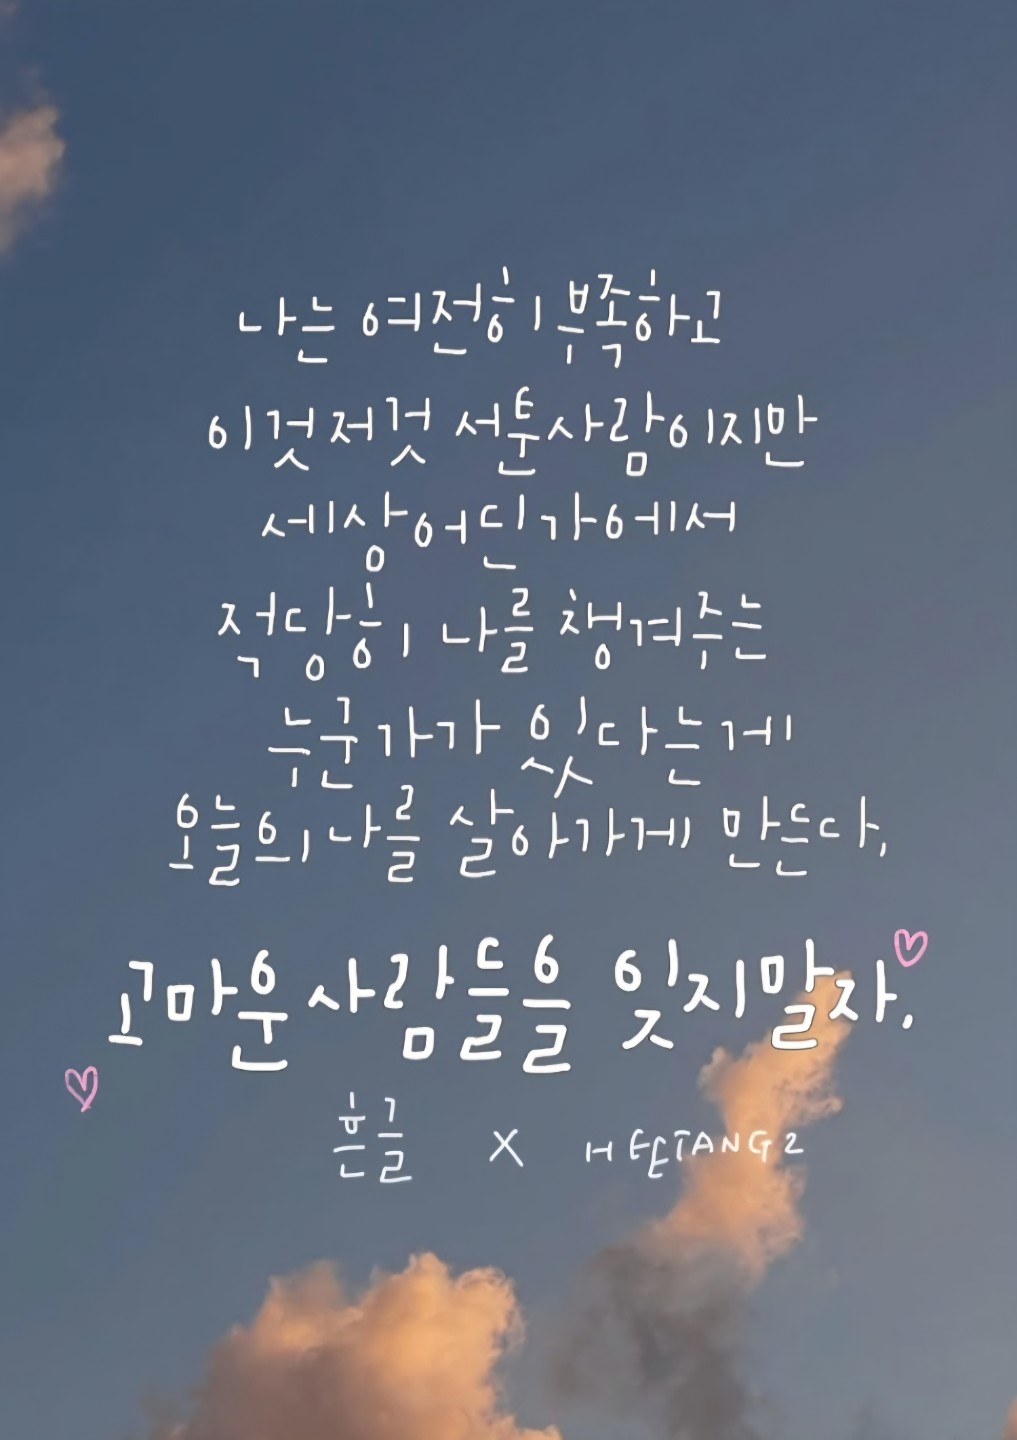 나는 여전히 부족하고
이것저것 서툰사람이지만
세상어딘가에서
적당히 나를 챙겨주는
누군가가 있다는게
오늘의 나를 살아가게 만든다.
고마운사람들을 잊지말자.
흔글 X HEETANG2